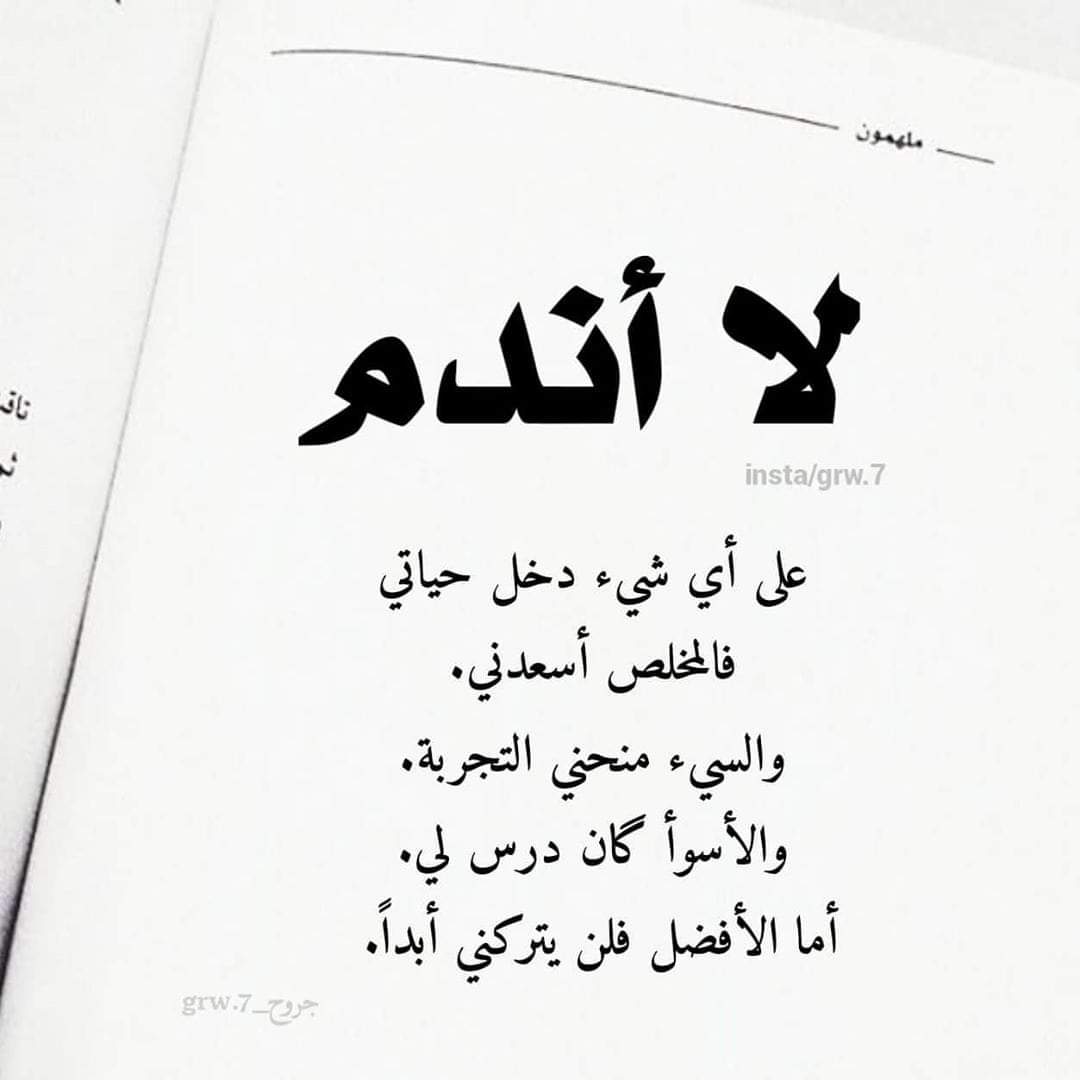 ملهمون
لا أندم
insta/grw.7
على أي شيء دخل حياتي
فالمخلص أسعدني.
والسيء منحني التجربة.
والأسوأ گان درس لي.
أما الأفضل فلن يتركني أبداً.
جروح_grw.7